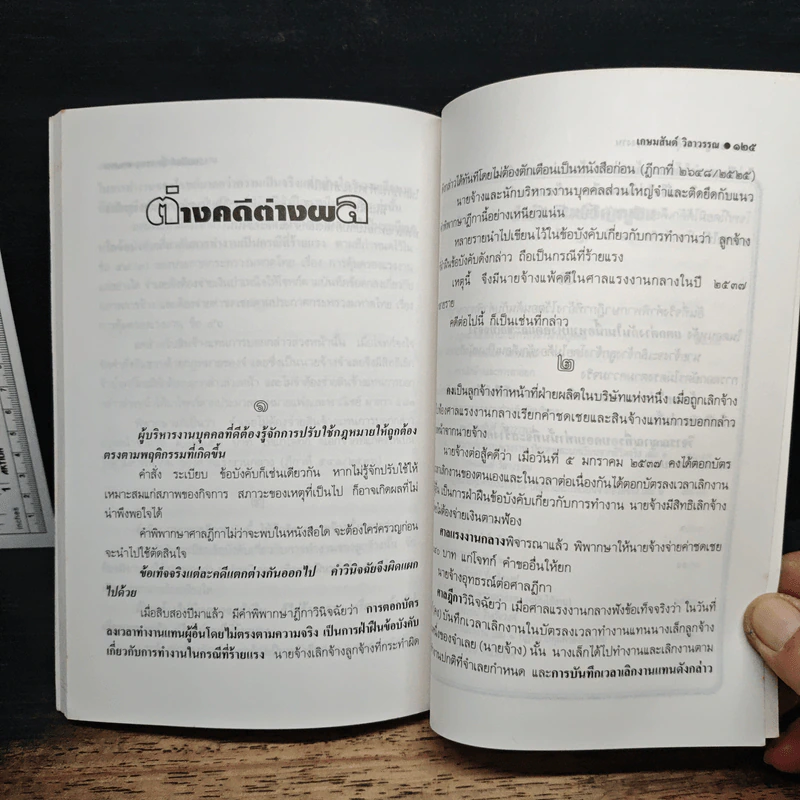 ต่างคดีต่างผล
๑
ผู้บริหารงานบุคคลที่ดีต้องรู้จักการปรับใช้กฎหมายให้ถูกต้อง
ตรงตามพฤติกรรมที่เกิดขึ้น
คำสั่ง ระเบียบ ข้อบังคับก็เช่นเดียวกัน หากไม่รู้จักปรับใช้ให้
เหมาะสมแก่สภาพของกิจการ สภาวะของเหตุที่เป็นไป ก็อาจเกิดผลที่ไม่
น่าพึงพอใจได้
คำพิพากษาศาลฎีกาไม่ว่าจะพบในหนังสือใด จะต้องใคร่ครวญก่อน
จะนำไปใช้ตัดสินใจ
ข้อเท็จจริงแต่ละคดีแตกต่างกันออกไป คำวินิจฉัยจึงผิดแผก
ไปด้วย
เมื่อสิบสองปีมาแล้ว มีคำพิพากษาฎีกาวินิจฉัยว่า การตอกบัตร
ลงเวลาทำงานแทนผู้อื่นโดยไม่ตรงตามความจริง เป็นการฝ่าฝืนข้อบังคับ
เกี่ยวกับการทำงานในกรณีที่ร้ายแรง นายจ้างเลิกจ้างลูกจ้างที่กระทำผิด
เกษมสันต์ วิลาวรรณ ● ๑๒๕
ดังกล่าวได้ทันทีโดยไม่ต้องตักเตือนเป็นหนังสือก่อน (ฎีกาที่ ๒๖๔๘/๒๕๒๕)
นายจ้างและนักบริหารงานบุคคลส่วนใหญ่จำและติดยึดกับแนว
คำพิพากษาฎีกานี้อย่างเหนียวแน่น
หลายรายนำไปเขียนไว้ในข้อบังคับเกี่ยวกับการทำงานว่า ลูกจ้าง
ฝ่าฝืนข้อบังคับดังกล่าว ถือเป็นกรณีที่ร้ายแรง
เหตุนี้ จึงมีนายจ้างแพ้คดีในศาลแรงงานกลางในปี ๒๕๓๗
หลายราย
คดีต่อไปนี้ ก็เป็นเช่นที่กล่าว
๒
คงเป็นลูกจ้างทำหน้าที่ฝ่ายผลิตในบริษัทแห่งหนึ่ง เมื่อถูกเลิกจ้าง
ฟ้องศาลแรงงานกลางเรียกค่าชดเชยและสินจ้างแทนการบอกกล่าว
หน้าจากนายจ้าง
นายจ้างต่อสู้คดีว่า เมื่อวันที่ ๕ มกราคม ๒๕๓๗ คงได้ตอกบัตร
เลิกงานของตนเองและในเวลาต่อเนื่องกันได้ตอกบัตรลงเวลาเลิกงาน
เป็นการฝ่าฝืนข้อบังคับเกี่ยวกับการทำงาน นายจ้างมีสิทธิเลิกจ้าง
ไม่ต้องจ่ายเงินตามฟ้อง
ศาลแรงงานกลางพิจารณาแล้ว พิพากษาให้นายจ้างจ่ายค่าชดเชย
บาท แก่โจทก์ คำขออื่นให้ยก
นายจ้างอุทธรณ์ต่อศาลฎีกา
ศาลฎีกาวินิจฉัยว่า เมื่อศาลแรงงานกลางฟังข้อเท็จจริงว่า ในวันที่
บันทึกเวลาเลิกงานในบัตรลงเวลาทำงานแทนนางเล็กลูกจ้าง
ของจำเลย (นายจ้าง) นั้น นางเล็กได้ไปทำงานและเลิกงานตาม
งานปกติที่จำเลยกำหนด และการบันทึกเวลาเลิกงานแทนดังกล่าว